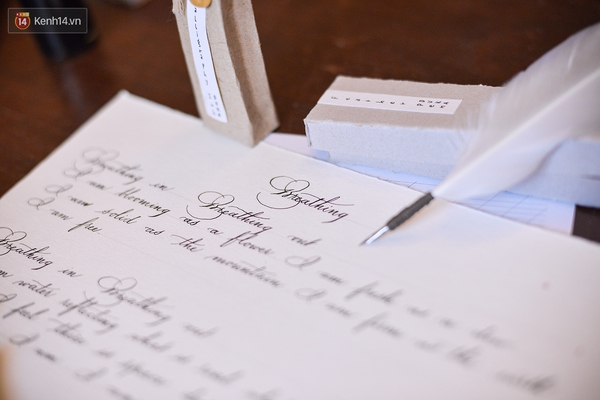 14 Kenh14.vn
Breathing
Breathing in Breathing out
I am blooming as a flower I am fresh as a dew
I am solid as the mountain I am firm as the earth
I am free
Breathing in Breathing out
am water reflecting what is real
I feel there is space
I am